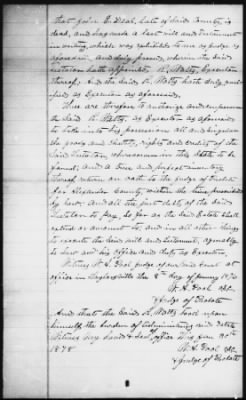 that John E. Deal, late of said County, is
dead, and has made a last will and testament
in writing, which was exhibited to me as judge as
aforesaid, and duly proved, wherein the said
testator hath appointed R. Watts, Executor
thereof, and the said R. Watts hath duly quali-
fied as Executor as aforesaid.
These are therefore to authorize and empower
the said R. Watts, as Executor as aforesaid
to take into his possession all and singular
the goods and chattels, rights and credits of the
said testator, wheresoever in this State to be
found, and a true and perfect inventory
thereof return on oath to the Judge of Probate
for Alexander County, within the time prescribed
by law: and all the just debts of the said
testator to pay, so far as the said Estate shall
extend or amount to, and in all other things
to execute the said will and testament, agreeably
to law and his office and duty as Executor
Witness W. A. Pool judge and seal of said Court at
office in Taylorsville the 8th day of January 1870
W. A. Pool
& Judge of Probate
And that the said R. Watts took upon
himself the burden of Administering said Estate
Witness my hand & Seal of office this Jan
W. A. Pool
& Judge of Probate